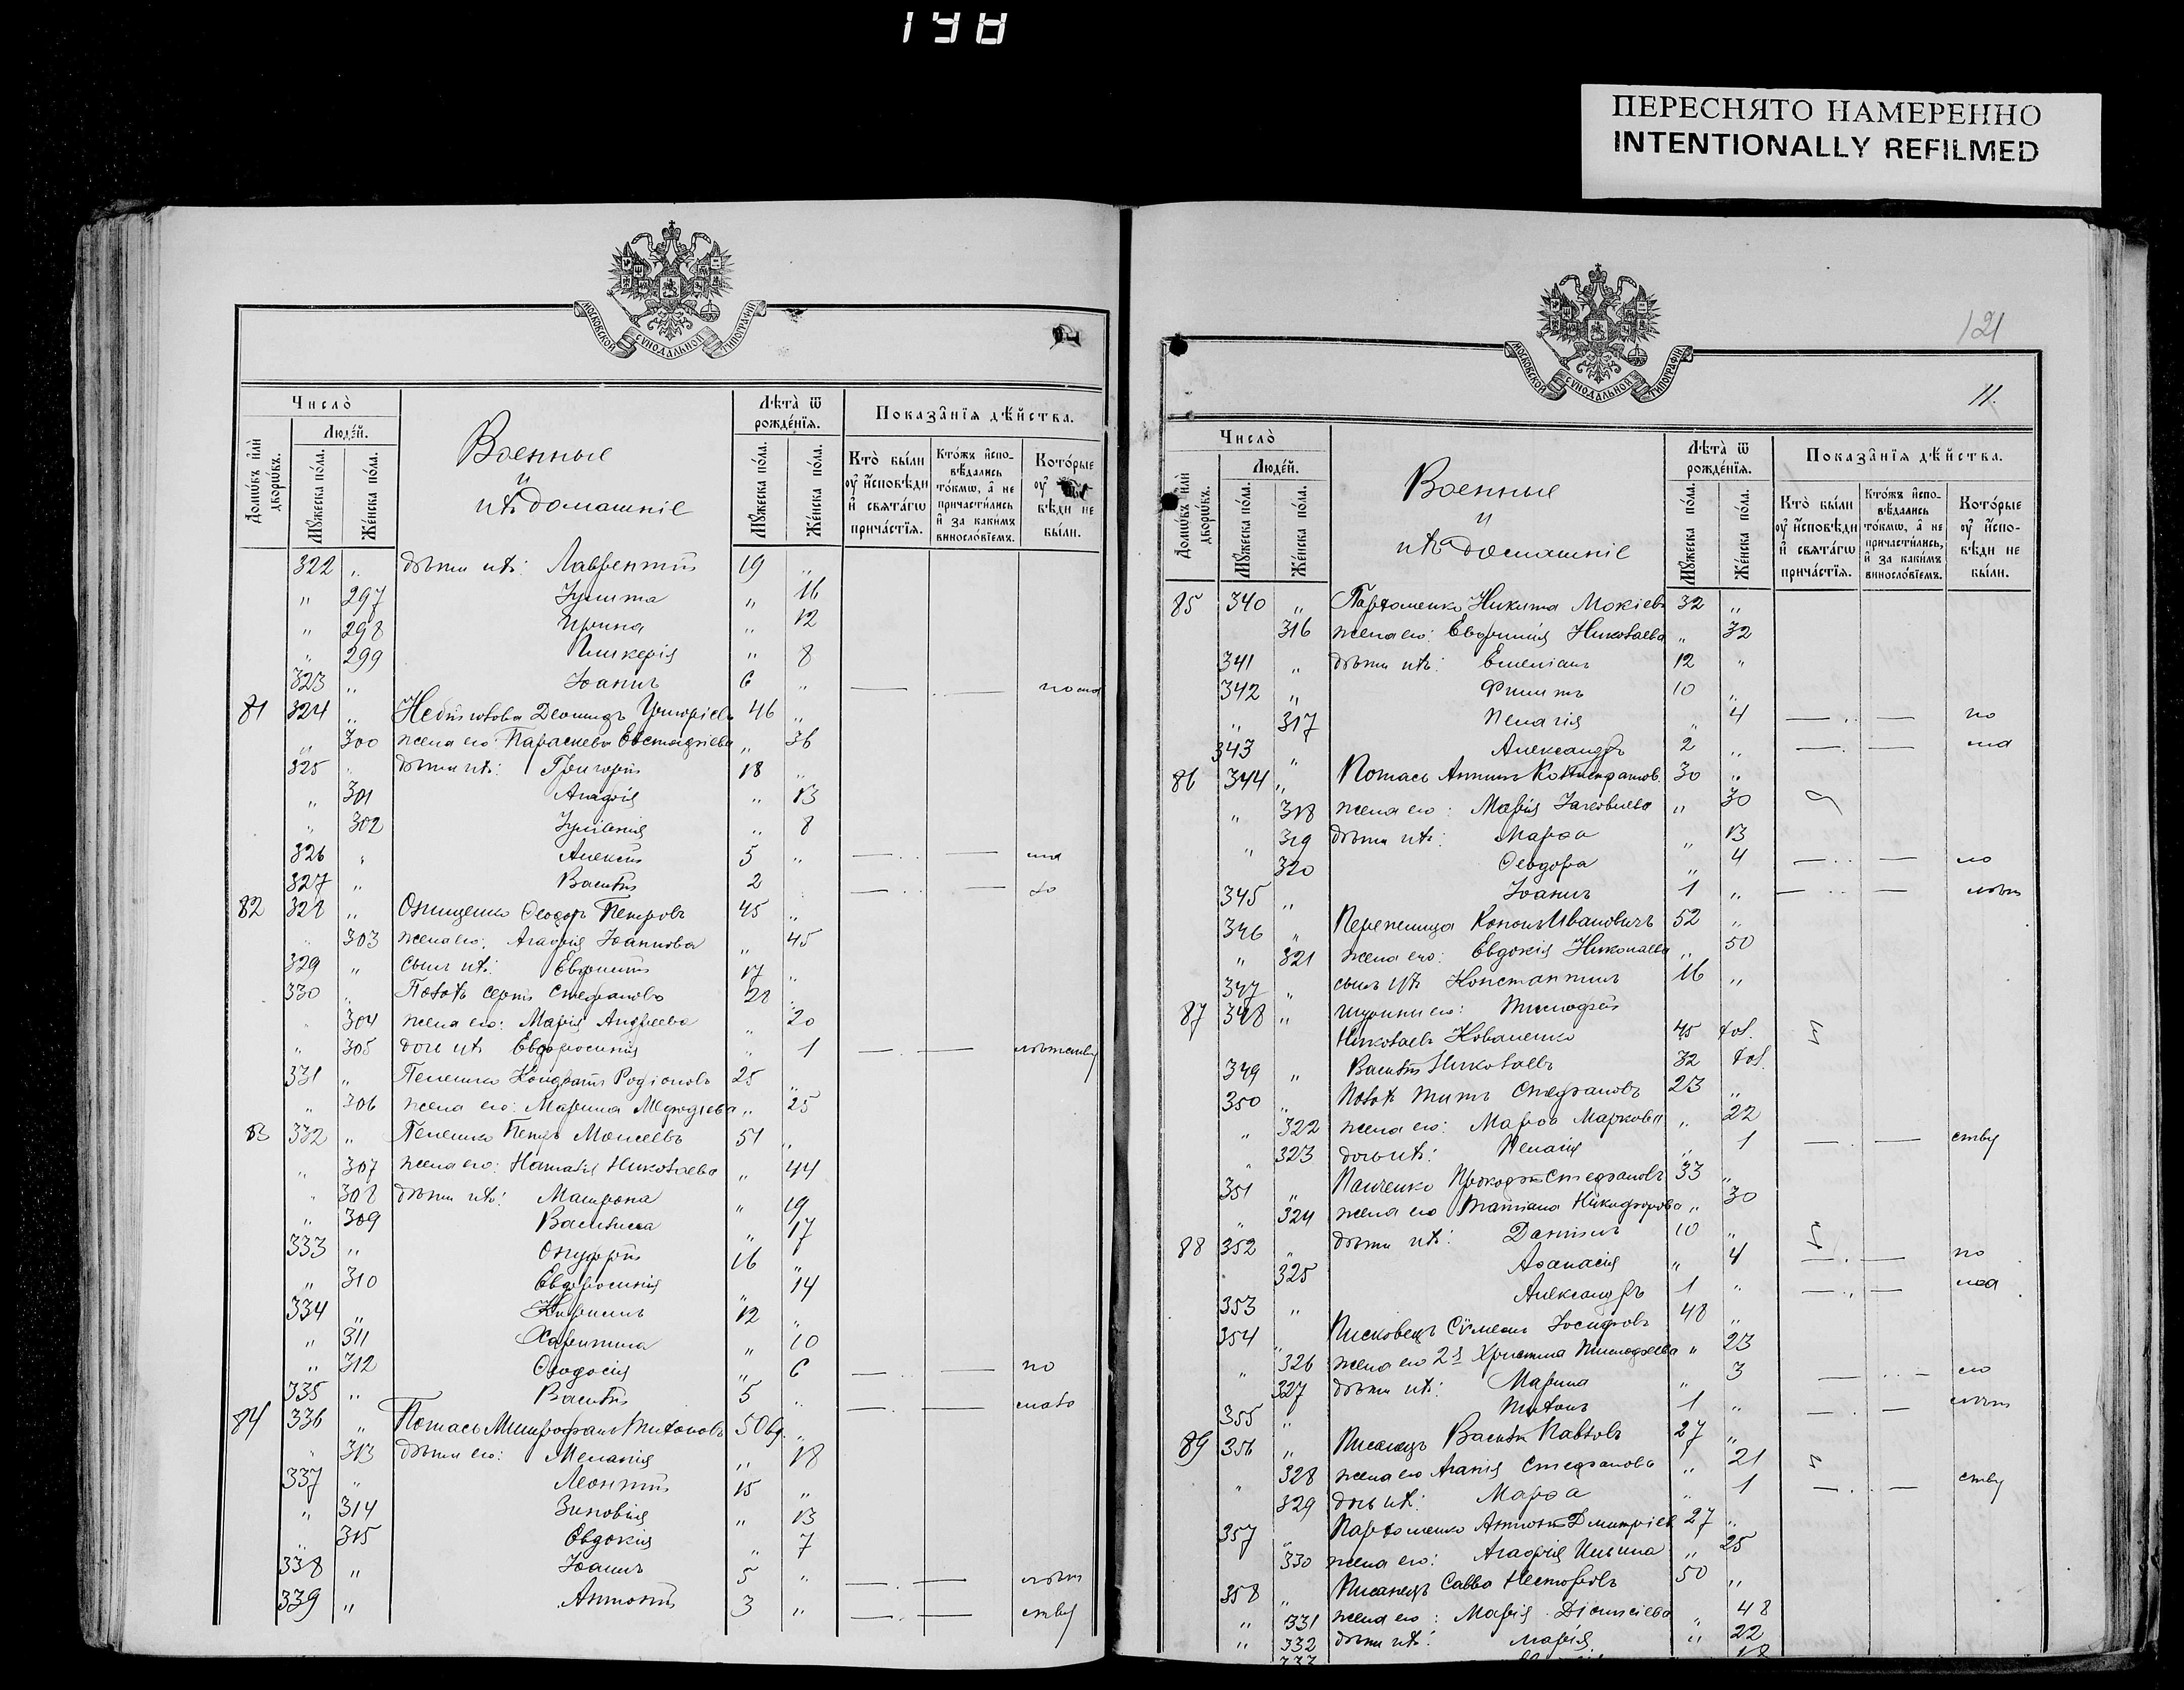 198
ПЕРЕСНЯТО НАМЕРЕННО
INTENTIONALLY REFILMED
МОСКОВСКОЙ СѴНОДАЛЬНОЙ ТИПОГРАФІИ
Число̀
Домѡ́въ и҆лѝ дворѡ́въ.
Люде́й.
Мꙋ́жеска по́ла.
Же́нска по́ла.
Военные
и
ихъ домашніе
Лѣ́та ѿ рожде́нїѧ.
Мꙋ́жеска по́ла.
Же́нска по́ла.
Показа̑нїѧ дѣ́йства.
Кто̀ бы́ли ᲂу҆ и҆сповѣди и҆ свѧта́гѡ прича́стїѧ.
Кто́жъ и҆сповѣдались то́кмѡ, а҆ не причасти́лись и҆ за каки́мъ винословїемъ.
Кото́рые ᲂу҆ вѣди не бы́ли.
322 „ дѣти ихъ: Лаврентій 19 „
„ 297 Іулита „ 16
„ 298 Ирина „ 12
„ 299 Гликерія „ 8
323 „ Іоаннъ 6 „ — — по мa
81 324 „ Леонидъ Григоріевъ 46 „
„ 300 жена его Параскева Евстафіева „ 36
325 дѣти ихъ: Григорій 18 „
„ 301 Агафія „ 13
„ 302 Іуліанія „ 8
326 „ Алексій 5 „ — —
327 „ Василій 2 — — ло
82 328 „ Онищенко Ѳеодоръ Петровъ 45 „
303 жена его: Агафія Іоаннова „ 45
329 „ сынъ ихъ: Евфимій 17 „
330 „ Сергій Стефановъ 22 „
304 жена его: Марія Андреева „ 20
„ 305 дочь ихъ Евфросинія „ 1 — — лѣтству
331 „ Пелешко Кондратъ Родіоновъ 25 „
„ 306 жена его: Марина Меѳодіева „ 25
83 332 „ Пелешко Петръ Моисеевъ 51 „
„ 307 жена его: Наталія Николаева „ 44
„ 308 дѣти ихъ: Матрона „ 19
„ 309 Василисса „ 17
333 „ Онуфрій 16 „
„ 310 Евфросинія „ 14
334 „ Кириллъ 12 „
„ 311 Харитина „ 10
„ 312 Ѳеодосія „ 6 — — по
335 „ Василій 5 „ — — мало
84 336 „ Потась Митрофанъ Титовъ 50 вд. „
„ 313 дѣти его: Меланія „ 18
337 „ Леонтій 15 „
„ 314 Зиновія „ 13
„ 315 Евдокія „ 7
338 „ Іоаннъ 5 „ — — лѣт
339 „ Антоній 3 „ — — ству
121
МОСКОВСКОЙ СѴНОДАЛЬНОЙ ТИПОГРАФІИ
11.
Число̀
Домѡ́въ и҆лѝ дворѡ́въ.
Люде́й.
Мꙋ́жеска по́ла.
Же́нска по́ла.
Военные
и
ихъ домашніе
Лѣ́та ѿ рожде́нїѧ.
Мꙋ́жеска по́ла.
Же́нска по́ла.
Показа̑нїѧ дѣ́йства.
Кто̀ бы́ли ᲂу҆ и҆сповѣди и҆ свѧта́гѡ прича́стїѧ.
Кто́жъ и҆споведались то́кмѡ, а҆ не причасти́лись, и҆ за каки́мъ винословїемъ.
Кото́рые ᲂу҆ и҆сповѣди не бы́ли.
85 340 „ Пархоменко Никита Мокіевъ 32 „
316 жена его: Евфимія Николаева „ 32
341 „ дѣти ихъ: Емеліанъ 12 „
342 „ Филиппъ 10 „
„ 317 Пелагія „ 4 — — по
343 „ Александръ 2 „ — — ма
86 344 „ Потась Антипъ 30 „
„ 318 жена его: Марія „ 30
„ 319 дѣти ихъ: Марѳа „ 13
320 Ѳеодора „ 4 — — ло
345 „ Іоаннъ 1 „ — — лѣт
346 „ Перепелица Кононъ Ивановичъ 52 „
„ 321 жена его: Евдокія Николаева „ 50
347 „ сынъ ихъ Константинъ 16 „
87 348 „ шурины его: Тимоѳей
Николаевъ Коваленко 45 хол.
349 „ Василій Николаевъ 32 хол.
350 „ Титъ Стефановъ 23 „
„ 322 жена его: Марѳа Маркова „ 22
„ 323 дочь ихъ: Пелагія „ 1 — — ству
351 „ Панченко Прокофій Стефановъ 33 „
„ 324 жена его Татіана Никифорова „ 30
88 352 „ дѣти ихъ: Даніилъ 10 „
325 Аѳанасія „ 4 — — по
353 „ Александръ 1 „ — —
354 „ Писковецъ Сѵмеонъ Іосифовъ 48 „
„ 326 жена его 2я Христина Тимоѳеева „ 23
327 дѣти ихъ: Марина „ 3 — —
355 „ Титъ 1 „ — — лѣт
89 356 „ Писанецъ Василій Павловъ 27 „
„ 328 жена его Агапія Стефанова „ 21
329 дочь ихъ: Марѳа „ 1 — — ству
357 „ Пархоменко Антоній Дмитріев 27 „
330 жена его: Агафія Ильина „ 25
358 „ Писанецъ Савва Несторовъ 50 „
„ 331 жена его: Марія Діонисіева „ 48
„ 332 дѣти ихъ: Марія „ 22
333 18